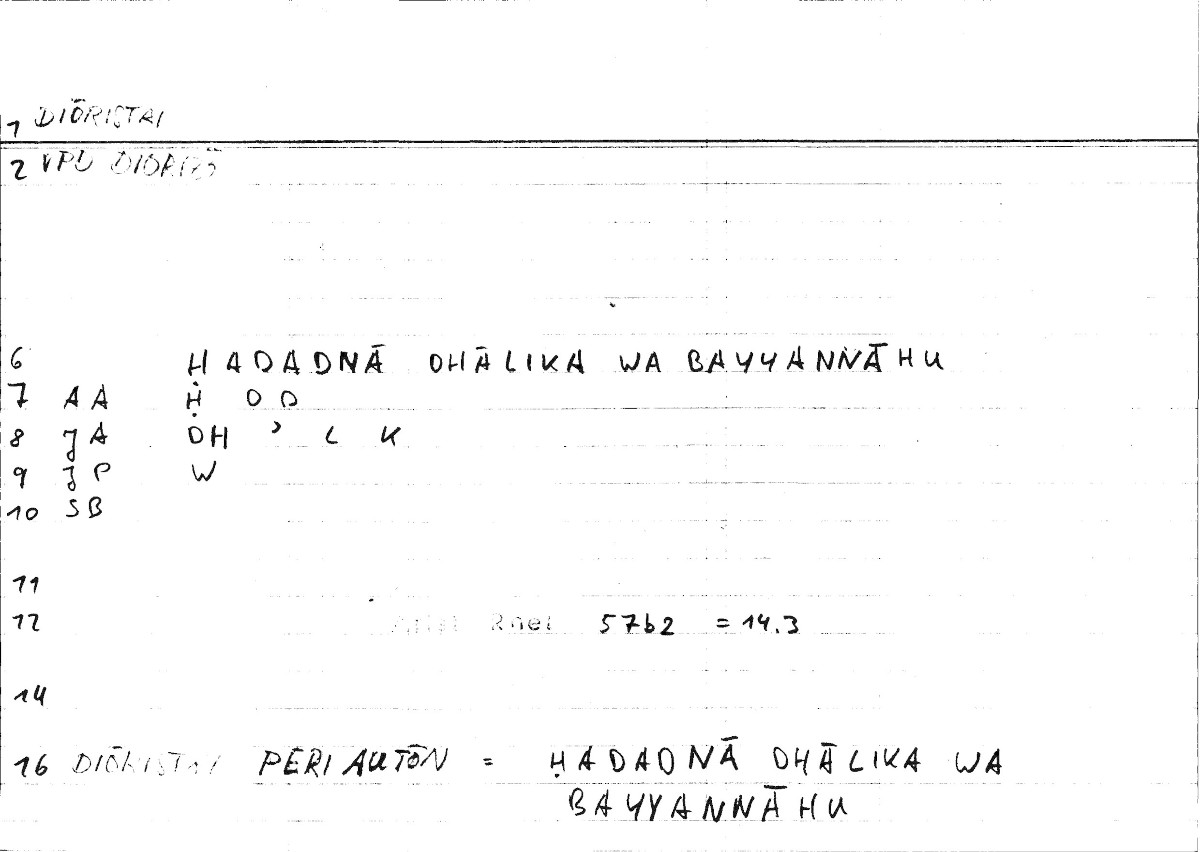 1 DIŌRISTAI
2 VPD DIORIZŌ
6 ḤADADNĀ DHĀLIKA WA BAYYANNĀHU
7 AA Ḥ D D
8 JA DH ' L K
9 JP W
10 SB
11
12 Arist Rhet 57b2 = 14.3
14
16 DIŌRISTAI PERI AUTŌN = ḤADADNĀ DHĀLIKA WA
BAYYANNĀHU